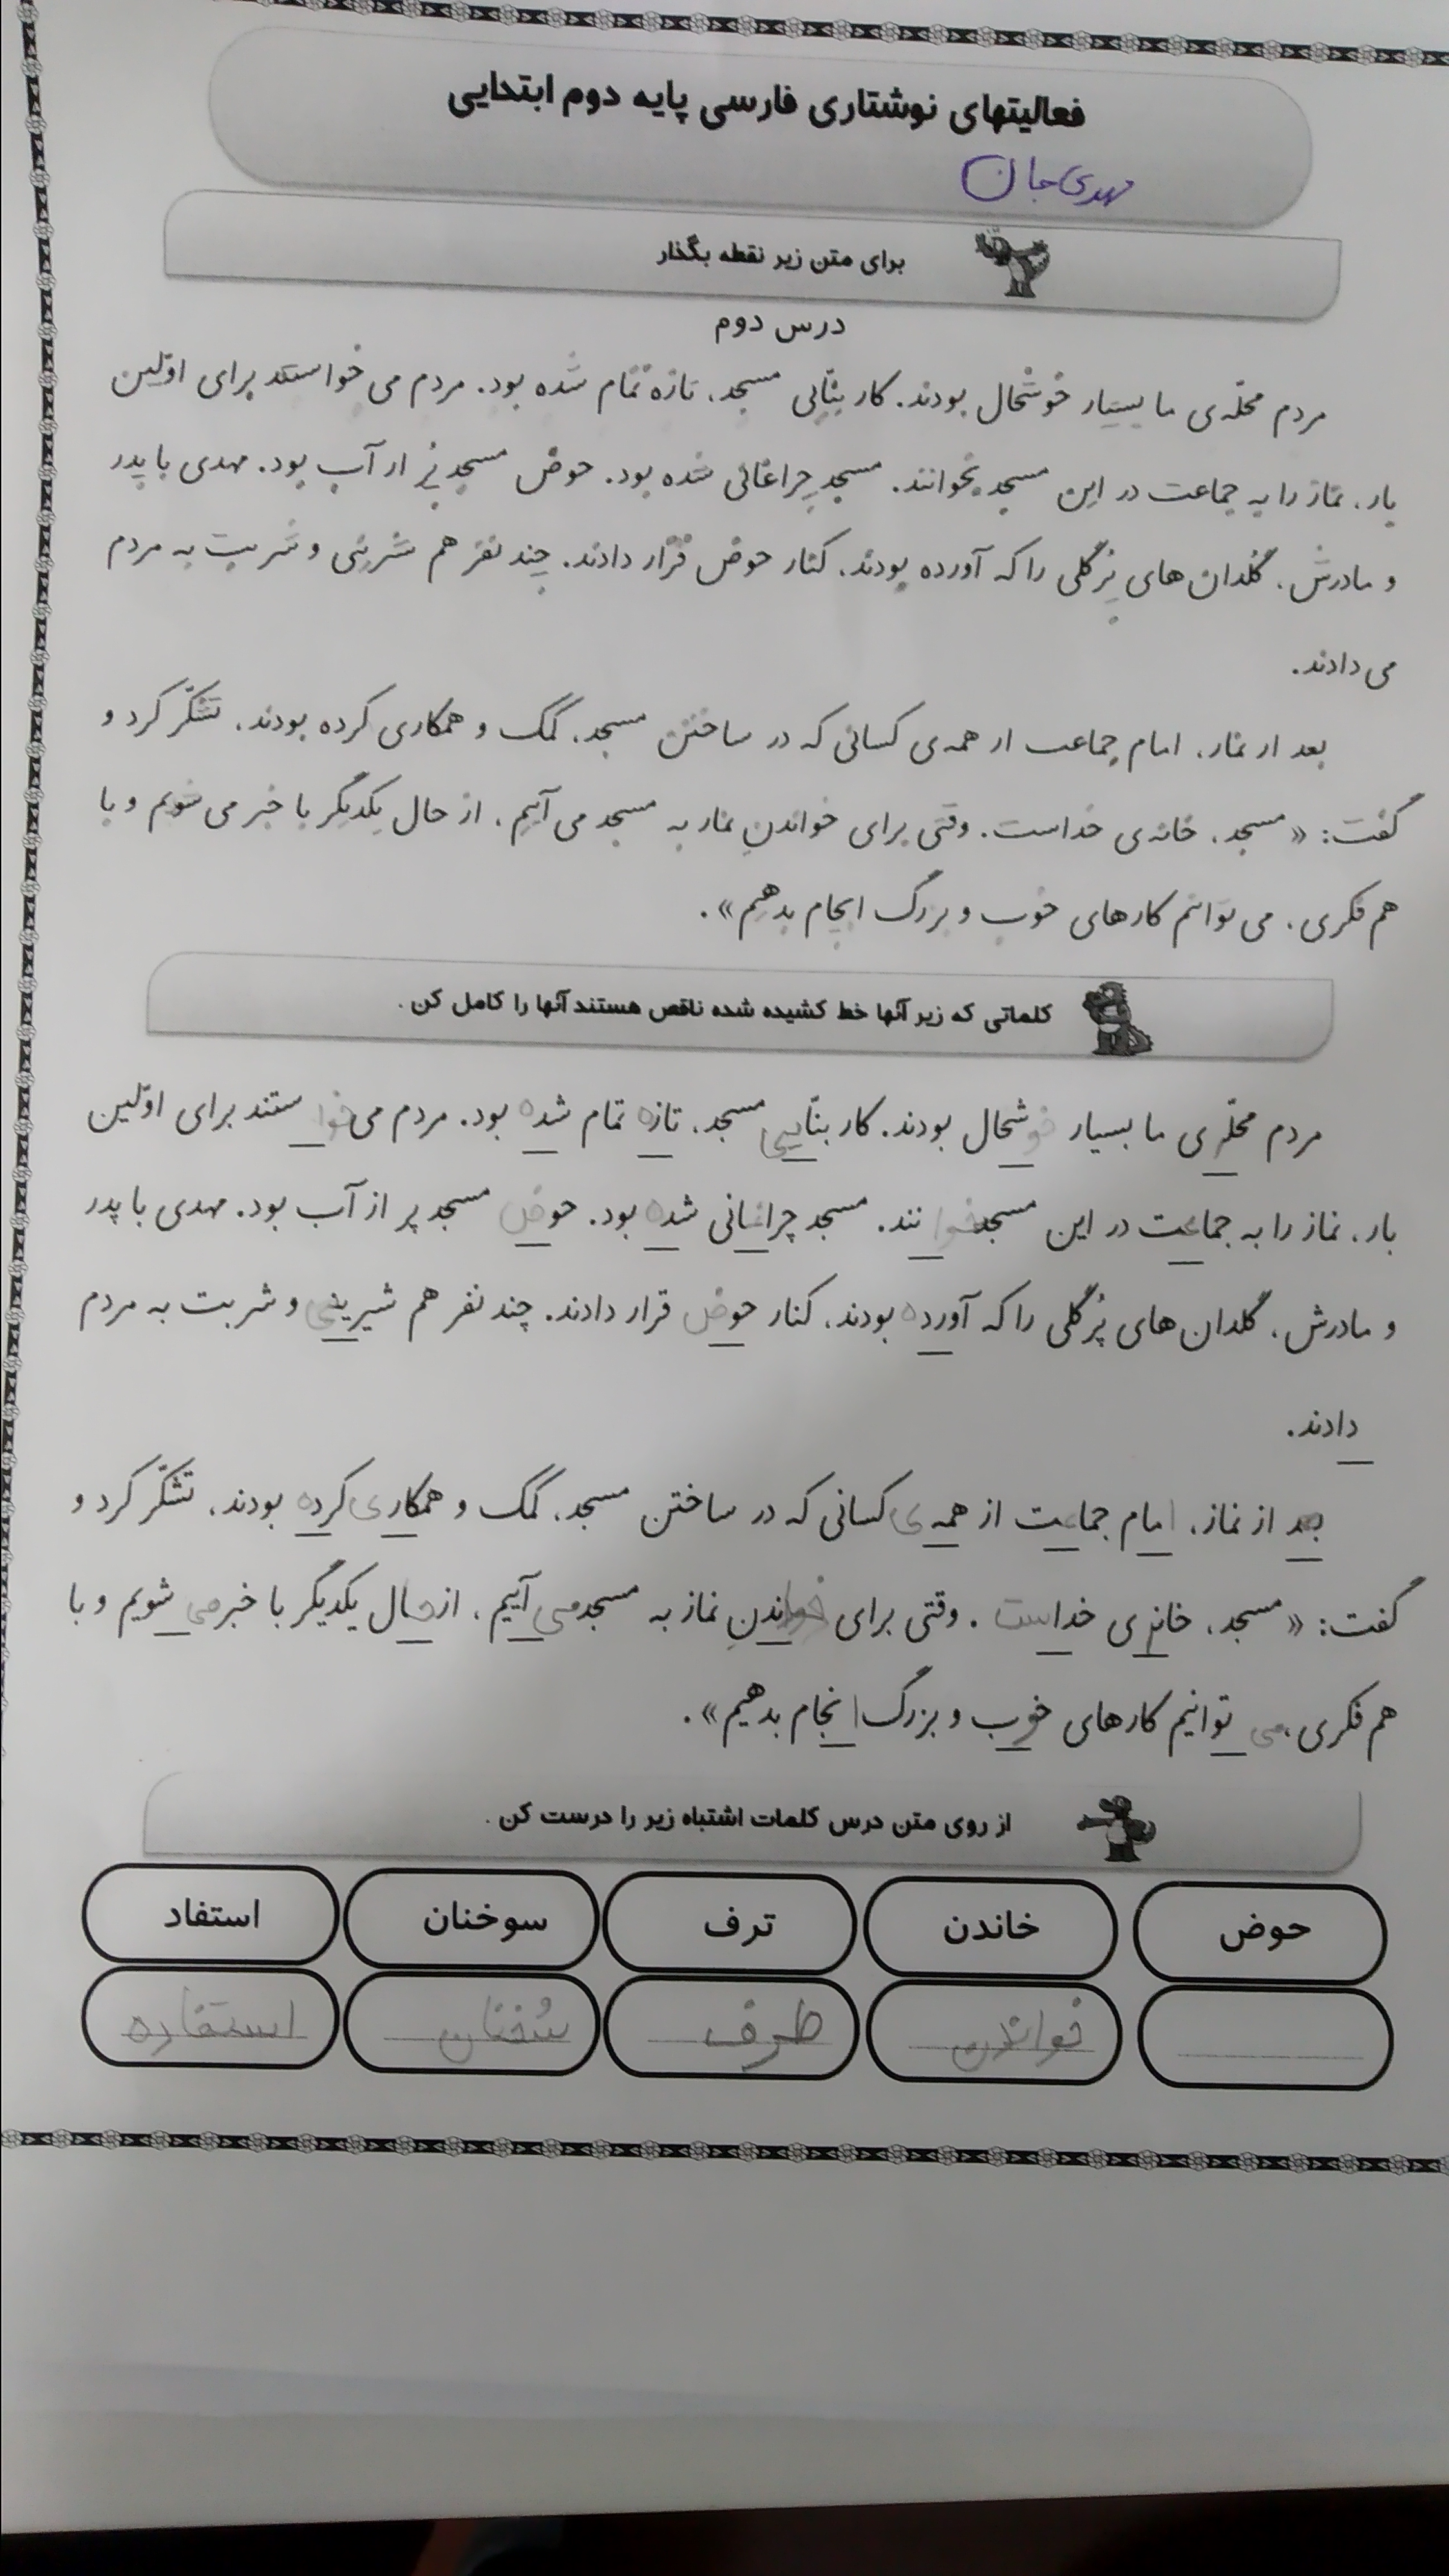 فعالیتهای نوشتاری فارسی پایه دوم ابتدایی
مهدی جان
برای متن زیر نقطه بگذار
درس دوم
مردم محلّه‌ی ما بسیار خوشحال بودند. کار بنّایی مسجد، تازه تمام شده بود. مردم می خواستند برای اوّلین
بار، نماز را به جماعت در این مسجد بخوانند. مسجد چراغانی شده بود. حوض مسجد پر از آب بود. مهدی با پدر
و مادرش، گلدان های پُرگلی را که آورده بودند، کنار حوض قرار دادند. چند نفر هم شیرینی و شربت به مردم
می دادند.
بعد از نماز، امام جماعت از همه ی کسانی که در ساختن مسجد، کمک و همکاری کرده بودند، تشکّر کرد و
گفت: « مسجد، خانه ی خداست. وقتی برای خواندنِ نماز به مسجد می آییم، از حال یکدیگر با خبر می شویم و با
هم فکری، می توانیم کارهای خوب و بزرگ انجام بدهیم».
کلماتی که زیر آنها خط کشیده شده ناقص هستند آنها را کامل کن .
مردم محلّه ی ما بسیار خوشحال بودند. کار بنّایی مسجد، تازه تمام شده بود. مردم می خواستند برای اوّلین
بار، نماز را به جماعت در این مسجد خوانند. مسجد چراغانی شده بود. حوض مسجد پر از آب بود. مهدی با پدر
و مادرش، گلدان های پُرگلی را که آورده بودند، کنار حوض قرار دادند. چند نفر هم شیرینی و شربت به مردم
دادند.
بعد از نماز، امام جماعت از همه ی کسانی که در ساختن مسجد، کمک و همکاری کرده بودند، تشکّر کرد و
گفت: « مسجد، خانه ی خداست . وقتی برای خواندنِ نماز به مسجد می آییم، از حال یکدیگر با خبر می شویم و با
هم فکری، می توانیم کارهای خوب و بزرگ انجام بدهیم».
از روی متن درس کلمات اشتباه زیر را درست کن .
حوض خاندن ترف سوخنان استفاد
خواندن طرف سُخنان استفاده